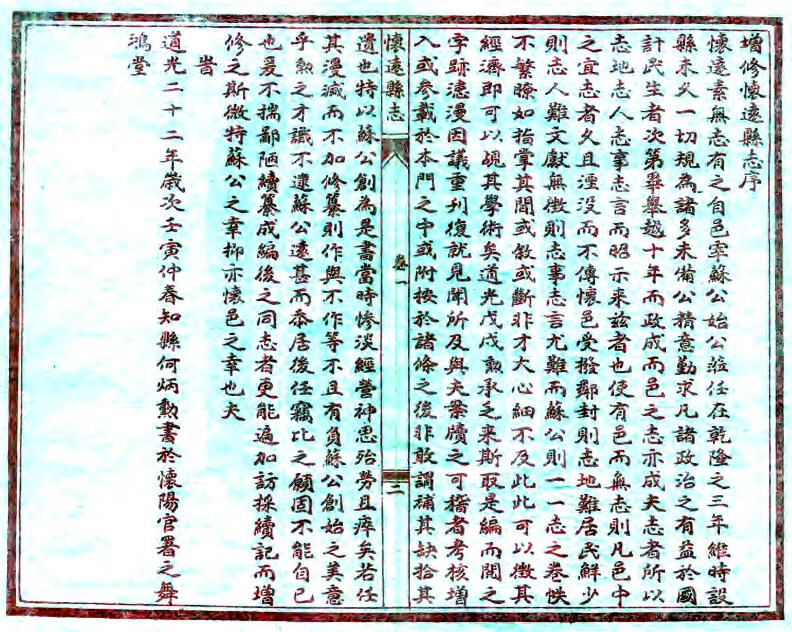 增修懷遠縣志序
懷遠素無志有之自邑宰蘇公始公蒞任在乾隆之三年維時設
縣未久一切規為諸多未備公精意勤求凡諸政治之有益於國
計民生者次第舉舉越十年而政成而邑之志亦成夫志者所以
志地志人志事志言而昭示来兹者也使有邑而無志則凡邑中
之宜志者久且湮没而不傳懷邑受撥鄰封則志地難居民鮮少
則志人難文獻無徵則志事志言尤難而蘇公則一一志之卷帙
不繁瞭如指掌其間或敘或斷非才大心細不及此此可以徵其
經濟即可以覘其學術矣道光戊戌勲承乏来斯取是編而閱之
字跡漶漫因議重刊復就見聞所及與夫案牘之可稽者考核增
入或參載於本門之中或附按於諸條之後非敢謂補其缺拾其
懷遠縣志
卷一
二
遺也特以蘇公創為是書當時慘淡經營神思殆勞且瘁矣若任
其漫滅而不加修纂則作與不作等不且有負蘇公創始之美意
乎勲之才識不逮蘇公遠甚而忝居後任竊比之願固不能自已
也爰不揣鄙陋續纂成編後之同志者更能遍加訪採續記而增
修之斯微特蘇公之幸抑亦懷邑之幸也夫
旹
道光二十二年歲次壬寅仲春知縣何炳勲書於懷陽官署之舞
鴻堂